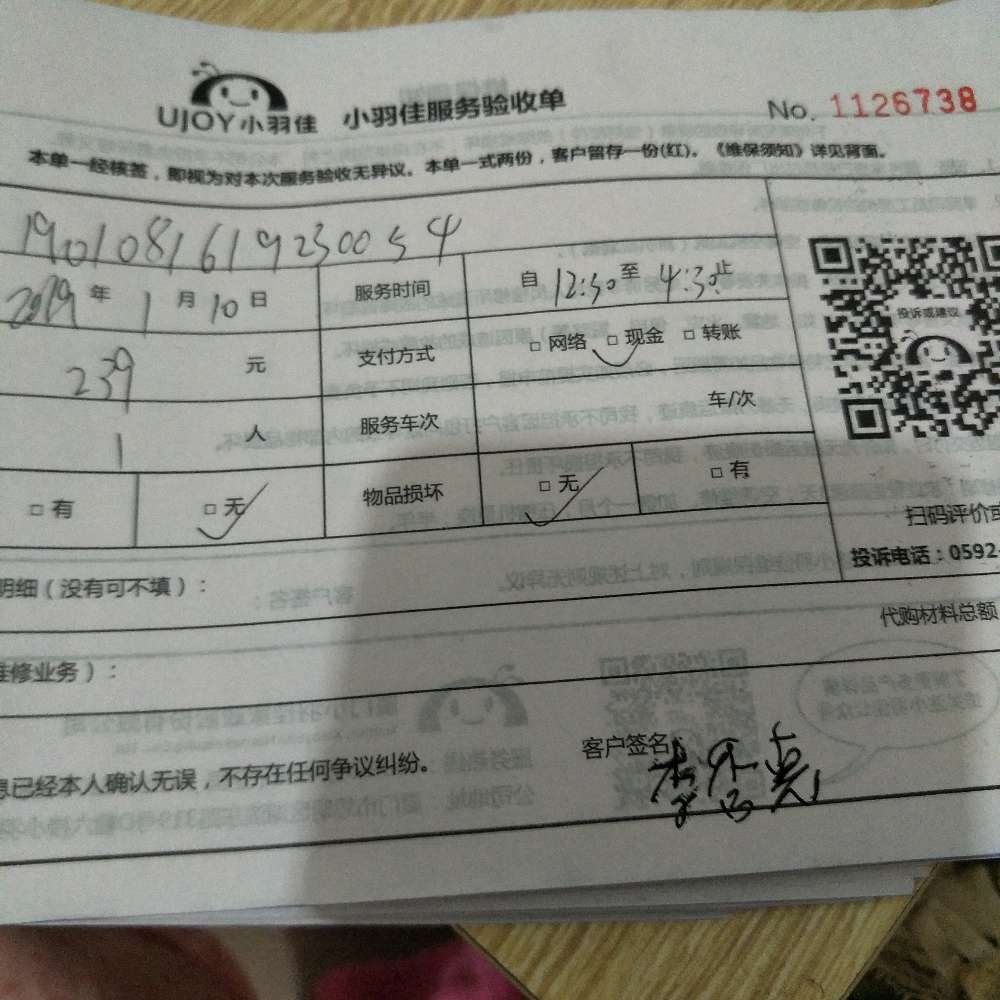 UJOY小羽佳 小羽佳服务验收单 No. 1126738
本单一经核签，即视为对本次服务验收无异议。本单一式两份，客户留存一份(红)。《维保须知》详见背面。
1901081619230054
2019 年 1 月 10 日 服务时间 自 12:30 至 4:30 止
239 元 支付方式 □ 网络 □ 现金 □ 转账
1 人 服务车次 车/次
□ 有 □ 无 物品损坏 □ 无 □ 有
投诉或建议
扫码评价或
投诉电话：0592-
明细（没有可不填）：
代购材料总额
维修业务）：
息已经本人确认无误，不存在任何争议纠纷。 客户签名：